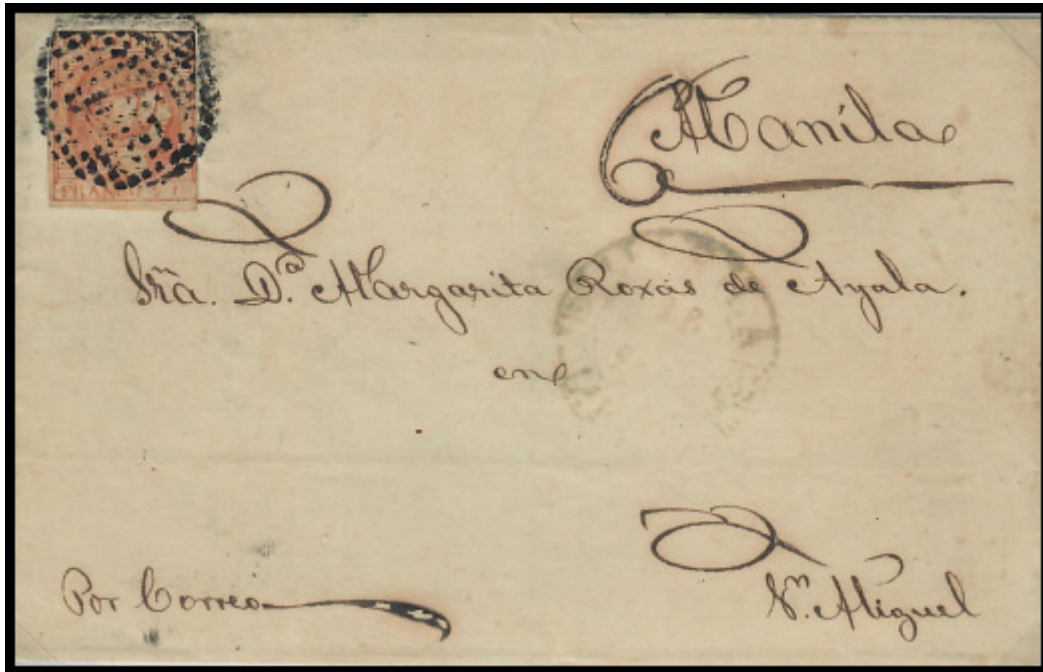 FRANCO
Manila
Sra. Dª. Margarita Roxas de Ayala.
en
Sn. Miguel
Por Correo